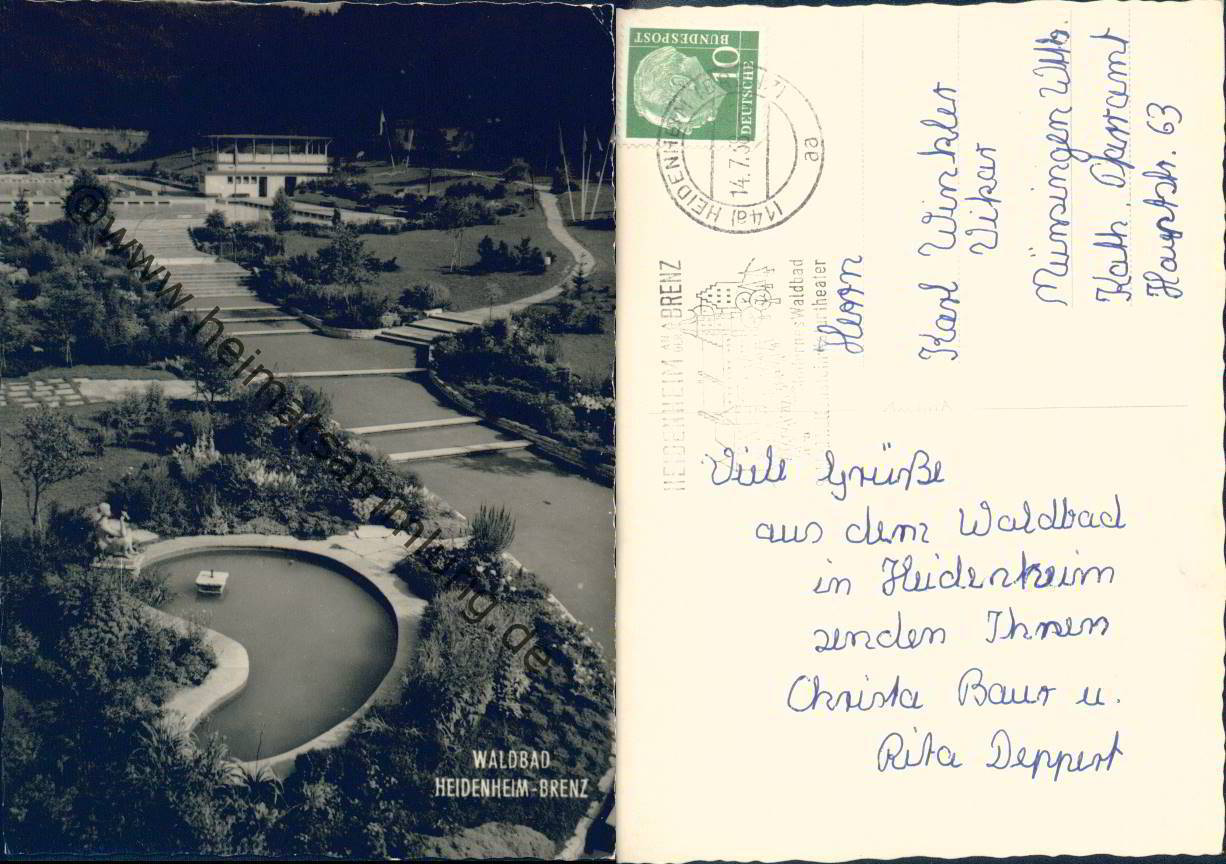 WALDBAD
HEIDENHEIM-BRENZ
@www.heimatsammlung.de
DEUTSCHE
BUNDESPOST
10
(14a) HEIDENHEIM
14.7.
aa
HEIDENHEIM AN DER BRENZ
Waldbad
Herrn
Karl Winkler
Vikar
Münsingen Wttb.
Kath. Pfarramt
Hauptstr. 63
Viele Grüße
aus dem Waldbad
in Heidenheim
senden Ihnen
Christa Baur u.
Rita Deppert